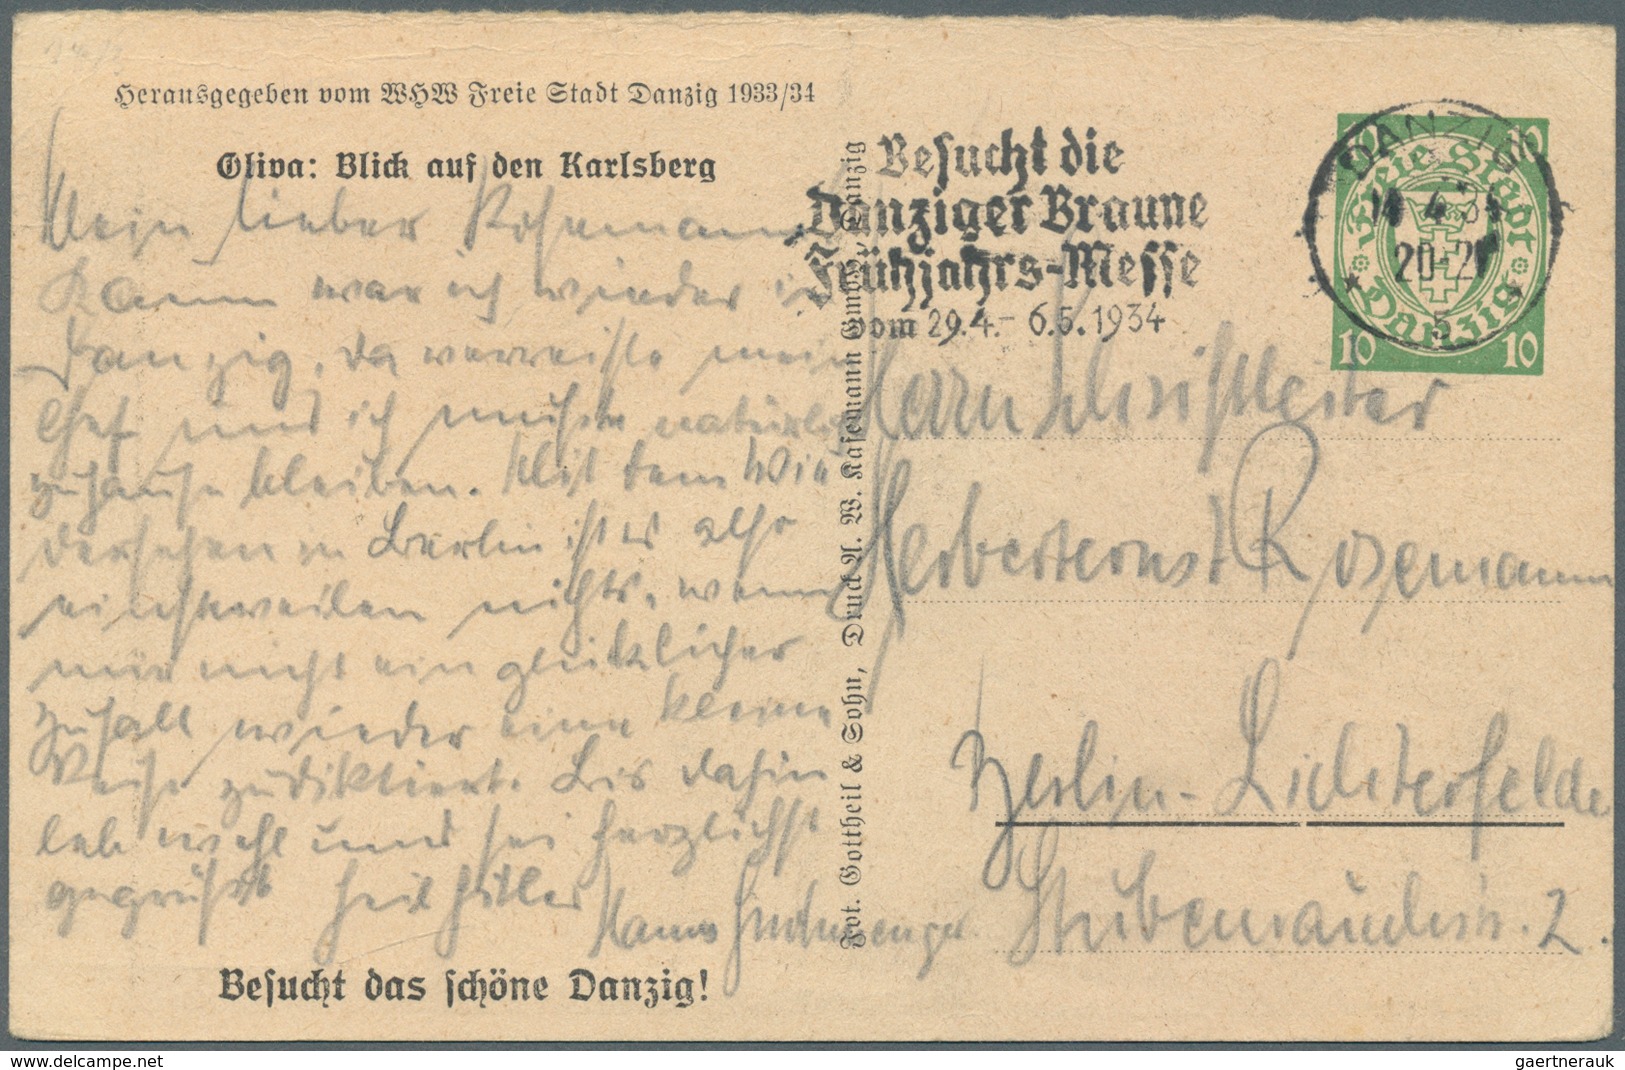 Herausgegeben vom WHW Freie Stadt Danzig 1933/34
Oliva: Blick auf den Karlsberg
Mein lieber Rosemann
Kaum war ich wieder in
Danzig, da verreiste mein
Chef und ich musste natürlich
zuhause bleiben. Mit dem Wie
dersehen in Berlin ist es also
einstweilen nichts, wenn
mir nicht ein glücklicher
Zufall wieder eine kleine
Reise zudiktiert. Bis dahin
leb wohl und sei herzlichst
gegrüsst Heil Hitler
Hanns
Besucht das schöne Danzig!
Fot. Gottheil & Sohn, Druck A. W. Kafemann GmbH, Danzig
Besucht die
Danziger Braune
Frühjahrs-Messe
vom 29.4.- 6.5.1934
DANZIG
14.4.34
20-21
5
10 10
Freie Stadt
Danzig
10 10
Herrn Schriftleiter
Herbert Ernst Rosemann
Berlin-Lichterfelde
2.
gaertnerauk
delcampe.net